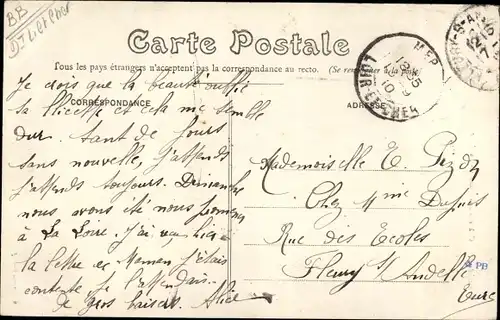 BB
Carte Postale
Tous les pays étrangers n'acceptent pas la correspondance au recto. (Se renseigner à la poste)
CORRESPONDANCE
ADRESSE
MER
LOIR-ET-CHER
Je crois que la beauté oublie
sa et cela me semble
dur. Tant de jours
sans nouvelle, j'attends
j'attends toujours. Dimanche
nous avons été nous promener
à La Loire. J'ai reçu hier
la lettre de Maman j'étais
contente je l'attendais.
De gros baisers. Alice
Mademoiselle E.
Chez Mme Dupuis
Rue des Ecoles
Fleury s/ Andelle
Eure
PB